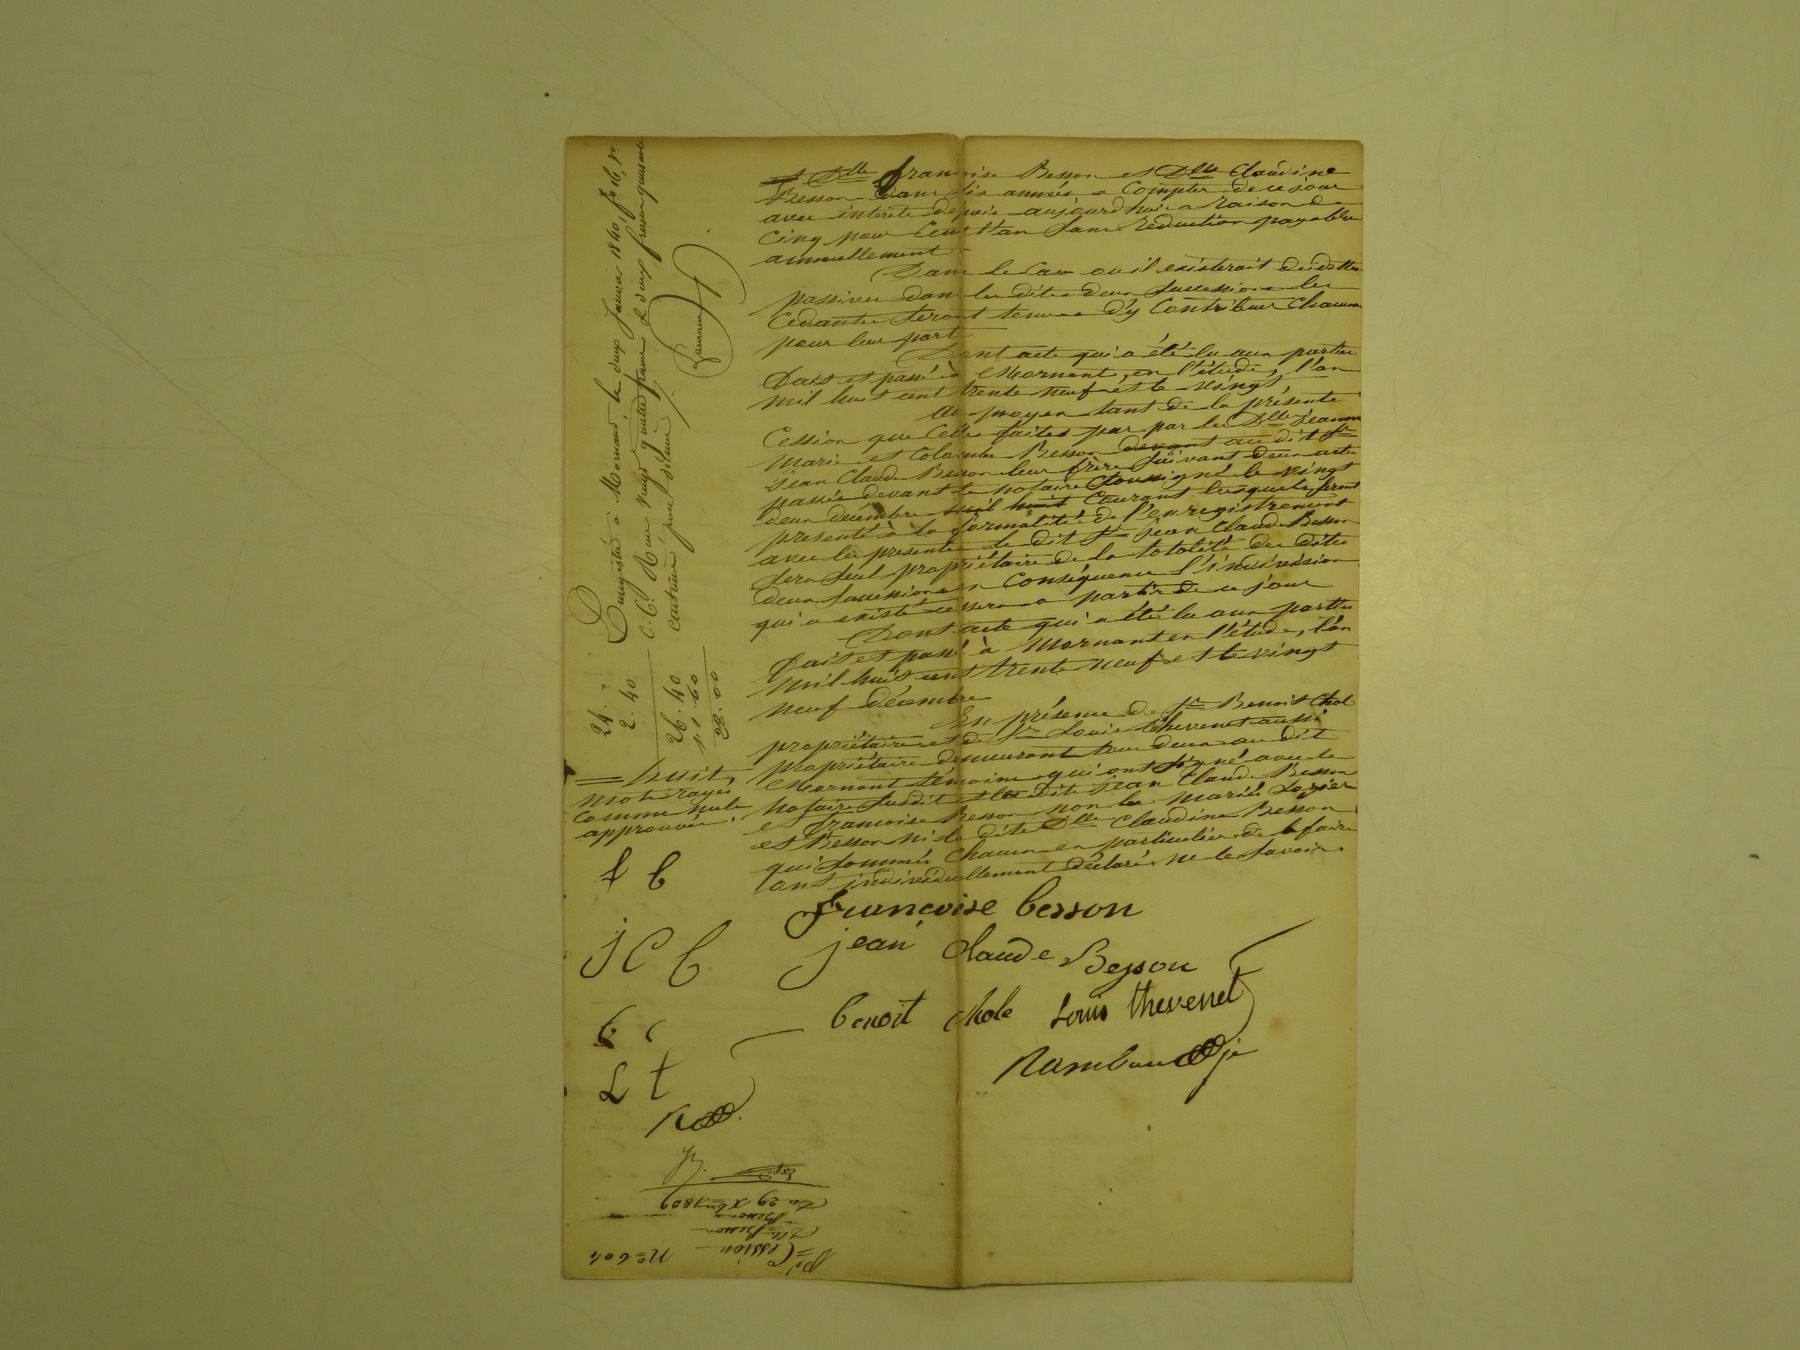 et Dlle françoise Besson et Dlle Claudine
Besson dans dix années a Compter de ce jour
avec intérêts depuis aujourd'hui a Raison de
Cinq pour Cent l'an Sans Réduction payables
annuellement
Dans le Cas ou il existerait des dettes
passives dans les dites deux Successions les
Cédantes Seront tenues d'y Contribuer Chacune
pour leur part
Dont acte qui a été lu aux parties
Fait et passé à Mornant, en l'étude, l'an
mil huit cent trente neuf et le vingt
Au moyen tant de la présente
Cession que Celles faites par par les Dlles Jeanne
Marie et Colombe Besson devant au dit Sr
Jean Claude Besson leur frère Suivant deux actes
passés devant le notaire Soussigné le vingt
deux décembre mil huit Courant lesquels Seront
présenté à la formalité de l'enregistrement
avec les présentes le dit Sr Jean Claude Besson
Sera Seul propriétaire de la totalité des dites
deux Successions en Conséquence l'indivision
qui a existé cessera a partir de ce jour
Dont acte qui a été lu aux parties
Fait et passé à Mornant en l'étude, l'an
mil huit cent trente neuf et le vingt
neuf décembre
En présence de Sr Benoit Chol
propriétaire et de Sr Louis thevenet aussi
propriétaire demeurant tous deux au dit
Mornant témoins qui ont Signé avec le
Notaire Susdit et les dits Jean Claude Besson
et françoise Besson non les Mariés
et Besson ni la dite Dlle Claudine Besson
qui Sommés Chacun en particulier de le faire
ont individuellement déclaré ne le Savoir.
françoise besson
jean Claude Besson
benoit chole Louis thevenet
Rambaud
Enregistré à Mornant le deux Janvier 1840, fo 16, Ro
C. C. Reçu vingt quatre francs & deux francs quarante
centimes pour dixième
24. "
2. 40
26. 40
1. 60
28. 00
= huit
mots rayés
Comme nuls
approuvés.
f b
J C b
b c
L t
R
No 604
Cession
Dlle Besson
Besson
Du 29 Xbre 1839